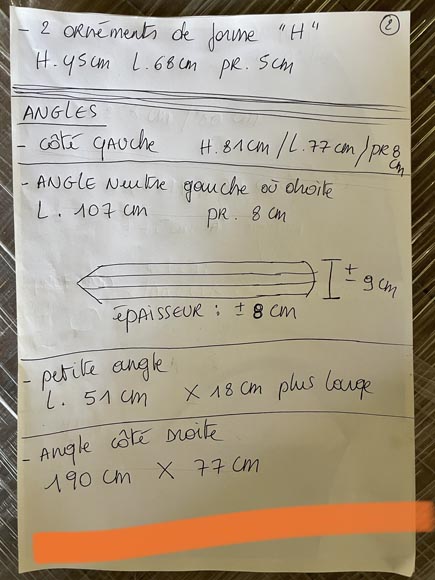 - 2 ORNÉMENTS de forme "H" 2
H. 45cm L. 68cm pr. 5cm
ANGLES
- côté GAUCHE H. 81cm / L. 77cm / pr 8 cm
- ANGLE Neutre gauche où droite
L. 107 cm pr. 8 cm
± 9 cm
ÉPAISSEUR : ± 8 cm
- petite angle
L. 51 cm X 18 cm plus large
- Angle côté Droite
190 cm X 77 cm